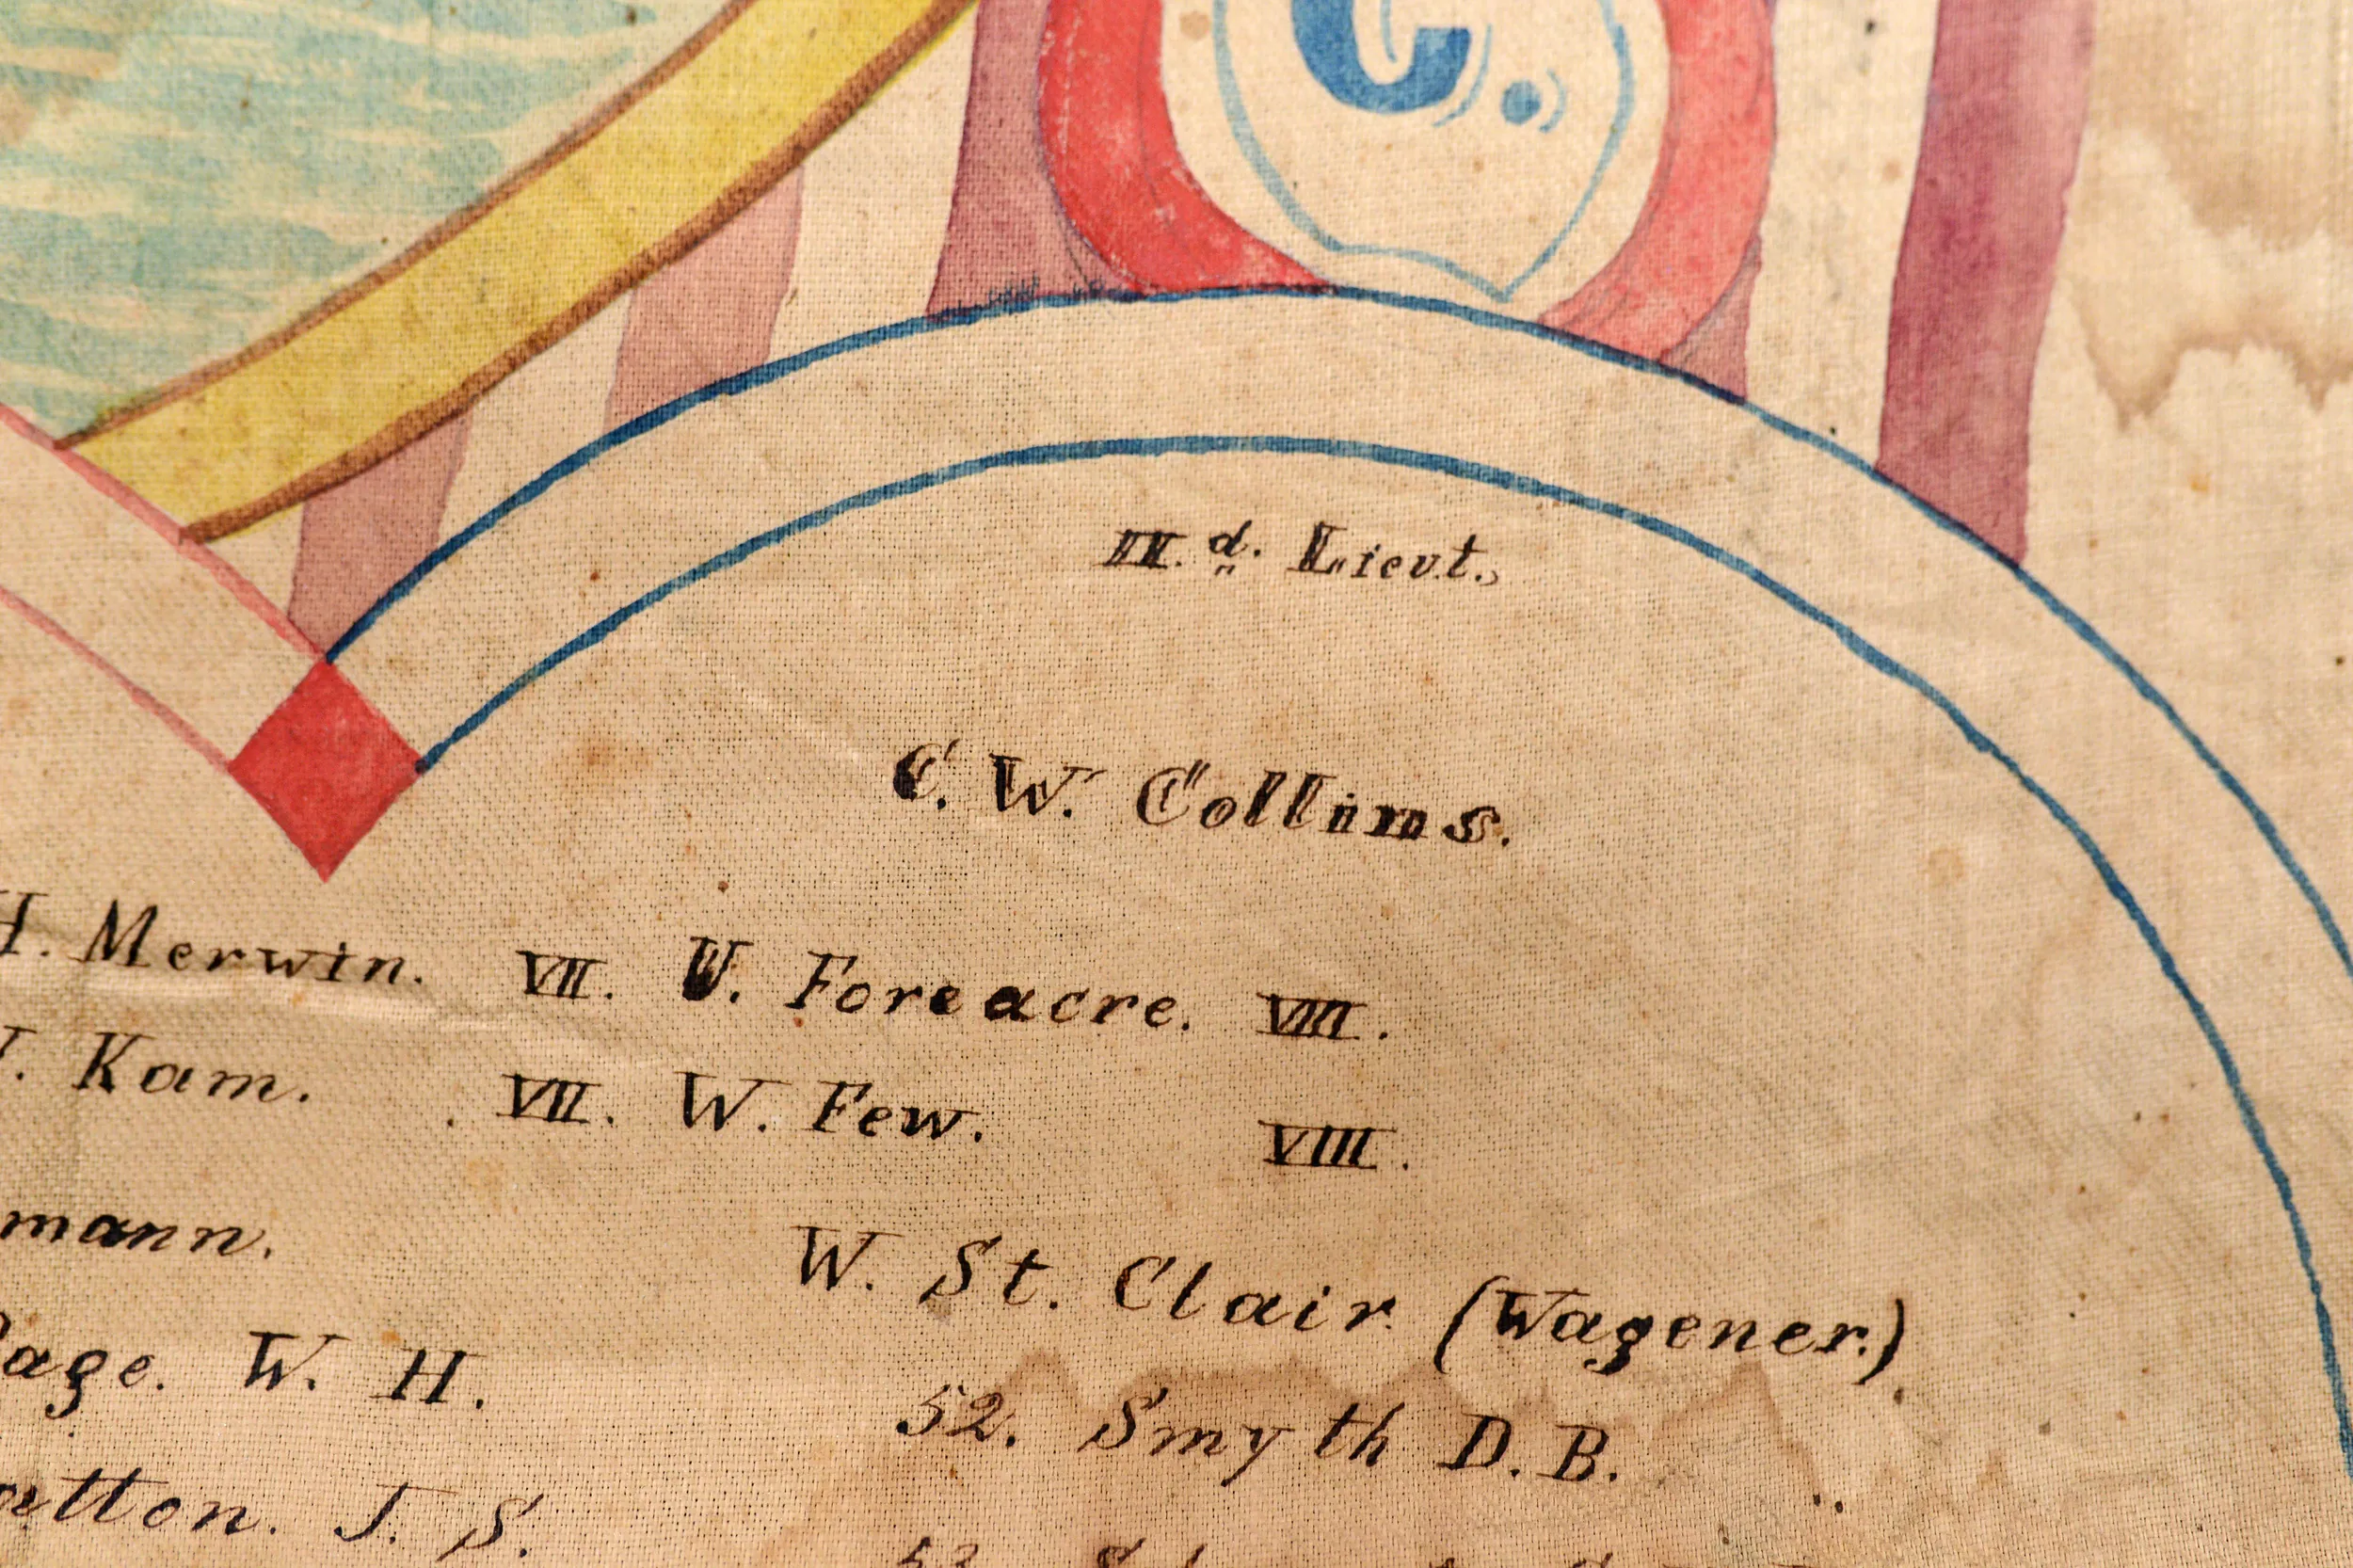 C.
II.d. Lieut.,
C. W. Collins.
H. Merwin. VII. W. Foreacre. VIII.
Kam. VII. W. Few. VIII.
mann. W. St. Clair. (Wagener.)
Page. W. H. 52. Smyth D. B.
atton. J. S. 53.